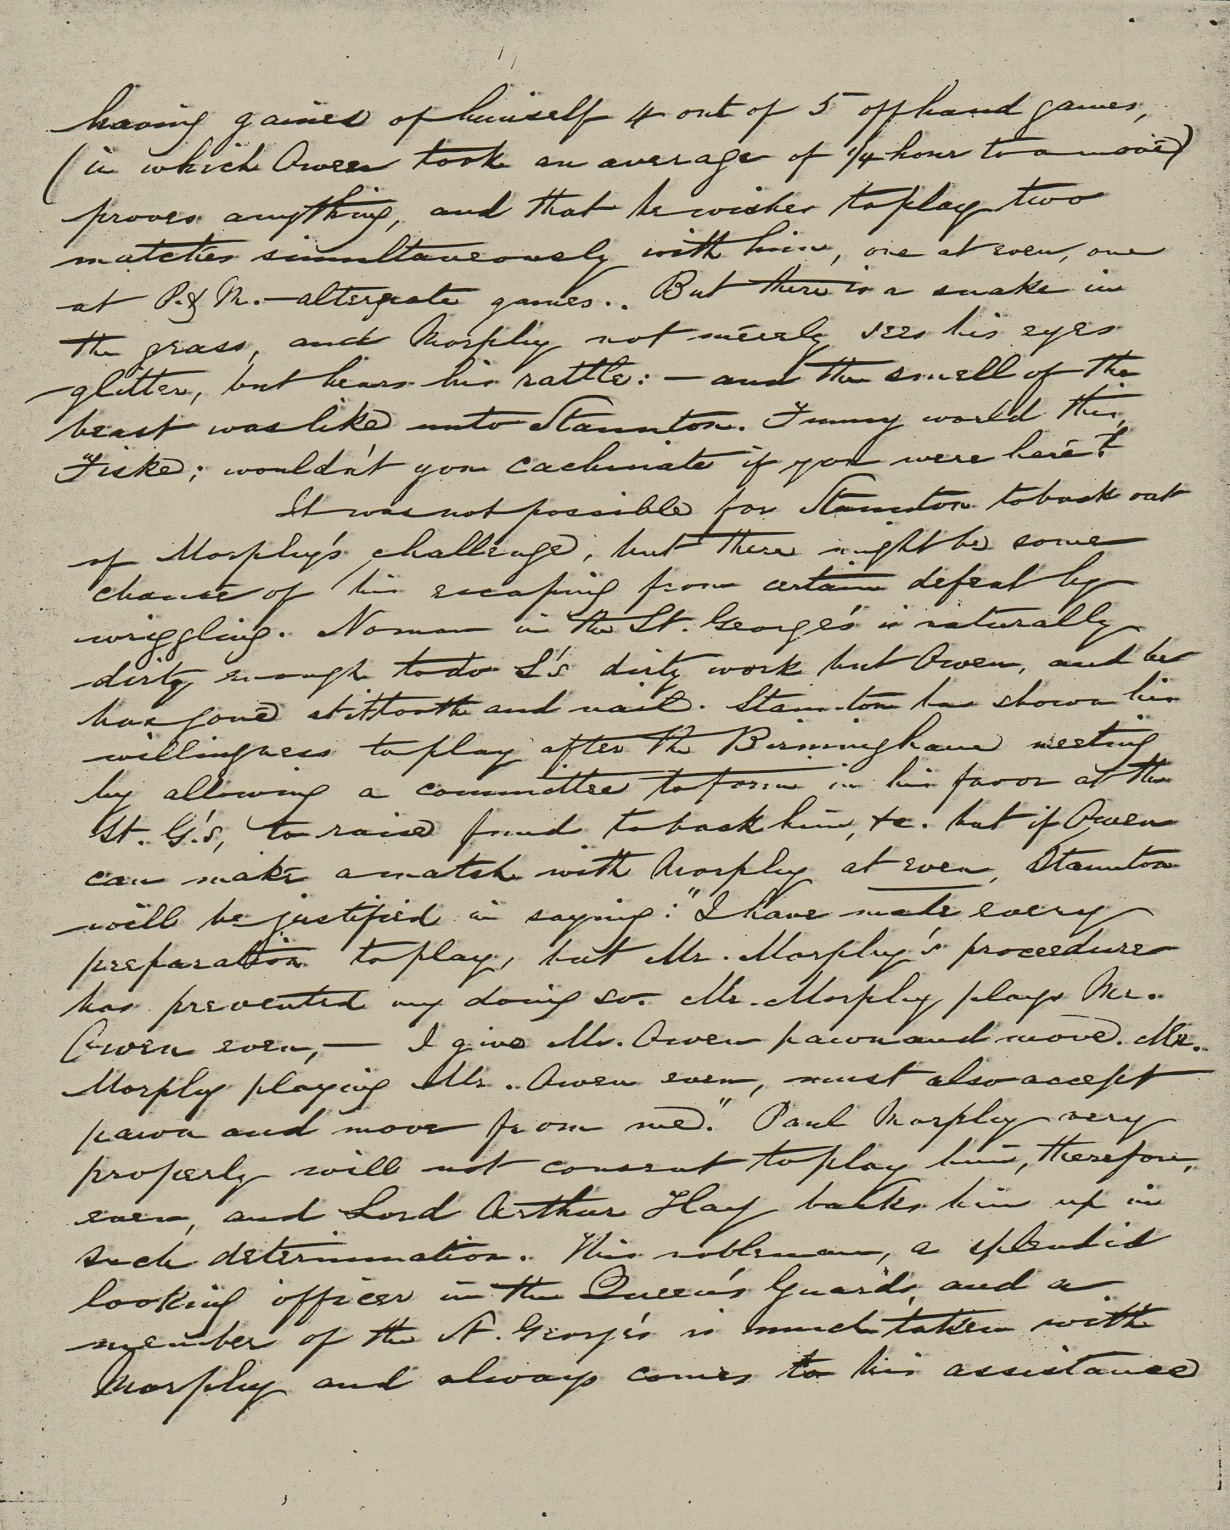 having gained of himself 4 out of 5 offhand games,
(in which Owen took an average of 1/4 hour to a move)
proves anything, and that he wishes to play two
matches simultaneously with him, one at even, one
at P. & M. — alternate games.. But there is a snake in
the grass, and Morphy not merely sees his eyes
glitter, but hears his rattle: — and the smell of the
beast was like unto Staunton. Funny world this,
Fiske; wouldn't you cachinate if you were here?
It was not possible for Staunton to back out
of Morphy's challenge, but there might be some
chance of his escaping from certain defeat by
wriggling. No man in the St. George's is naturally
dirty enough to do S's dirty work but Owen, and he
has gone at it tooth and nail. Staunton has shown his
willingness to play after the Birmingham meeting
by allowing a committee to form in his favor at the
St. G.'s, to raise fund to back him, &c. but if Owen
can make a match with Morphy at even, Staunton
will be justified in saying: "I have made every
preparation to play, but Mr. Morphy's proceedure
has prevented my doing so. Mr. Morphy plays Mr.
Owen even, — I give Mr. Owen pawn and move. Mr.
Morphy playing Mr. Owen even, must also accept
pawn and move from me." Paul Morphy very
properly will not consent to play him, therefore,
even, and Lord Arthur Hay backs him up in
such determination. This nobleman, a splendid
looking officer in the Queen's Guards, and a
member of the St. George's is much taken with
Morphy and always comes to his assistance